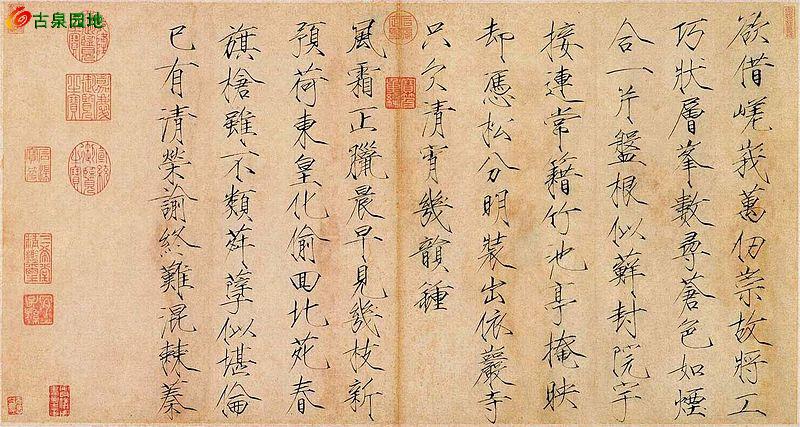 古泉园地
欲借嵯峩萬仞崇故將工
巧狀層峯數尋蒼色如煙
合一片盤根似蘚封院宇
接連常籍竹池亭掩映
却憑松分明裝出依巖寺
只欠清宵幾韻鍾
風霜正臘晨早見幾枝新
預荷東皇化偷回北苑春
旗槍雖不類荈孽似堪倫
已有清榮諭終難混棘蓁